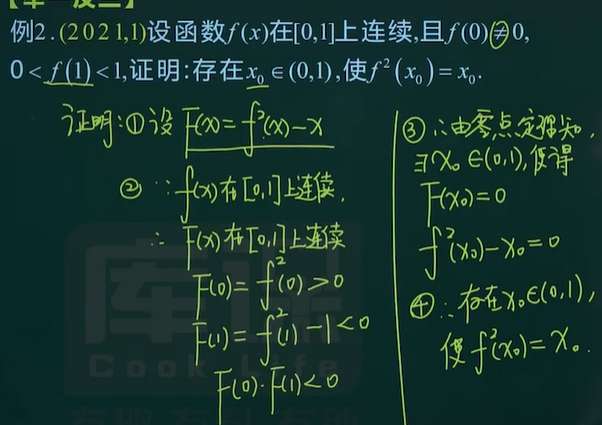 【举一反三】
例2.(2021,1)设函数f(x)在[0,1]上连续,且f(0)≠0,
0<f(1)<1,证明:存在x₀∈(0,1),使f²(x₀)=x₀.
证明:①设 F(x)=f²(x)-x
② ∵f(x)在[0,1]上连续.
∴ F(x)在[0,1]上连续
F(0)=f²(0)>0
F(1)=f²(1)-1<0
F(0)·F(1)<0
③∴由零点定理知,
∃x₀∈(0,1),使得
F(x₀)=0
f²(x₀)-x₀=0
④∴存在x₀∈(0,1),
使f²(x₀)=x₀.
库课
Cook Life